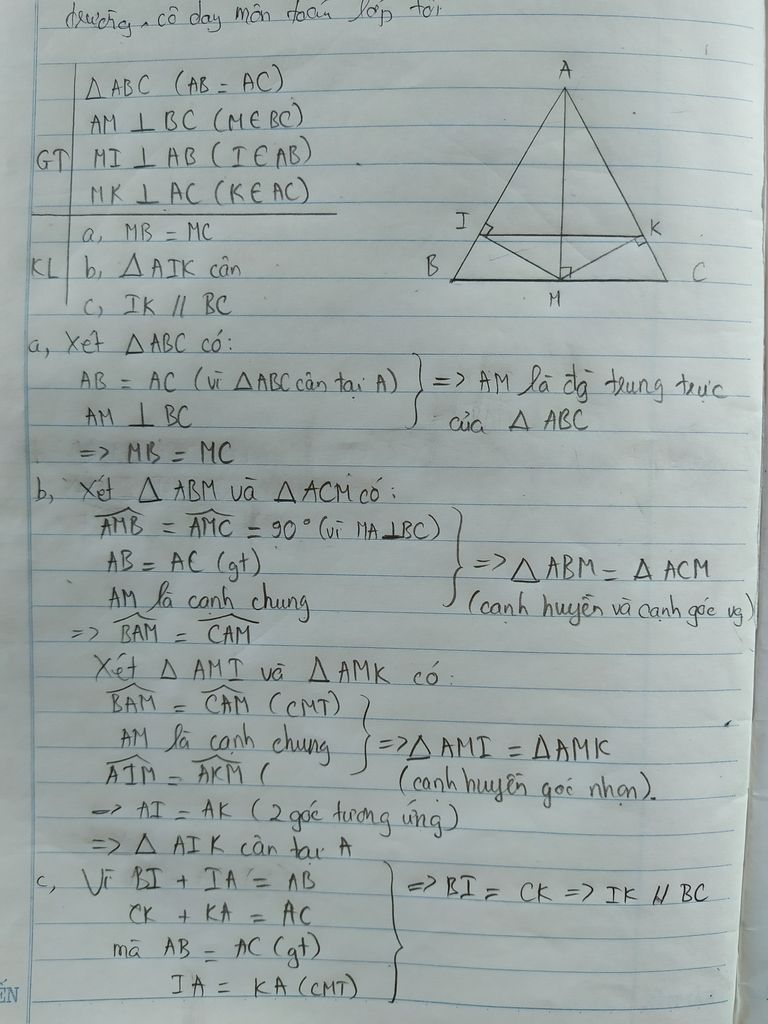 trường, cô dạy môn toán lớp tôi
GT
△ABC (AB = AC)
AM ⊥ BC (M∈BC)
MI ⊥ AB (I∈AB)
MK ⊥ AC (K∈AC)
KL
a, MB = MC
b, △AIK cân
c, IK // BC
A
I
K
B
C
M
a, Xét △ABC có:
AB = AC (vì △ABC cân tại A)
AM ⊥ BC
=> AM là đg trung trực
của △ ABC
=> MB = MC
b, Xét △ ABM và △ACM có:
AMB = AMC = 90° (vì MA⊥BC)
AB = AC (gt)
AM là cạnh chung
=> △ABM = △ ACM
(cạnh huyền và cạnh góc vg)
=> BAM = CAM
Xét △ AMI và △AMK có:
BAM = CAM (CMT)
AM là cạnh chung
AIM = AKM (
=> △AMI = △AMK
(cạnh huyền góc nhọn).
=> AI = AK (2 góc tương ứng)
=> △ AIK cân tại A
c, Vì BI + IA = AB
CK + KA = AC
mà AB = AC (gt)
IA = KA (CMT)
=> BI = CK => IK // BC
ẾN